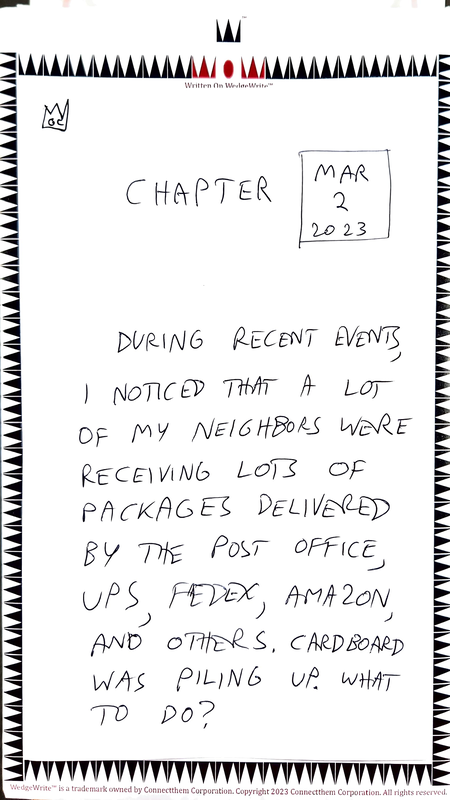 Written On WedgeWrite™
CHAPTER
MAR
2
2023
DURING RECENT EVENTS,
I NOTICED THAT A LOT
OF MY NEIGHBORS WERE
RECEIVING LOTS OF
PACKAGES DELIVERED
BY THE POST OFFICE,
UPS, FEDEX, AMAZON,
AND OTHERS. CARDBOARD
WAS PILING UP. WHAT
TO DO?
WedgeWrite™ is a trademark owned by Connectthem Corporation. Copyright 2023 Connectthem Corporation. All rights reserved.